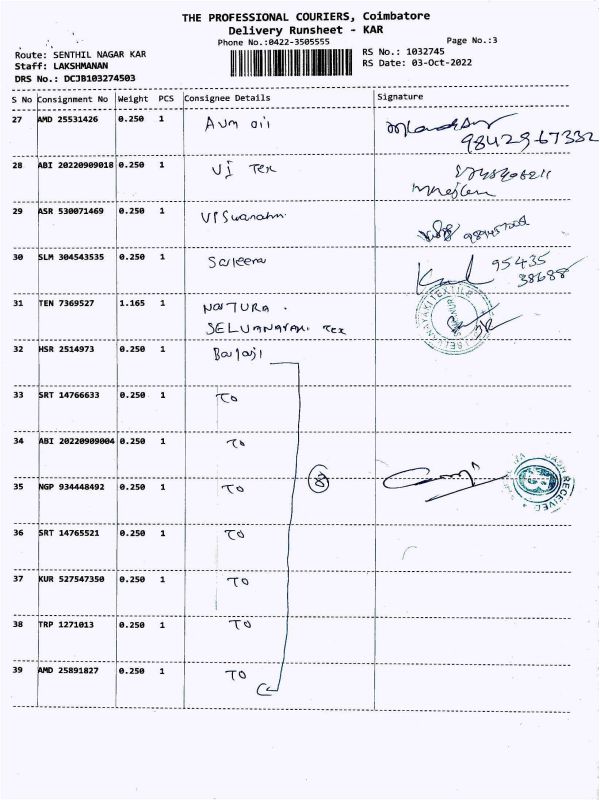 THE PROFESSIONAL COURIERS, Coimbatore
Delivery Runsheet - KAR
Phone No.:0422-3505555
Page No.:3
Route: SENTHIL NAGAR KAR
RS No.: 1032745
Staff: LAKSHMANAN
RS Date: 03-Oct-2022
DRS No.: DCJB103274503
S No Consignment No Weight PCS Consignee Details Signature
27 AMD 25531426 0.250 1 Avm oil
9842967332
28 ABI 20220909018 0.250 1 VI Tex
29 ASR 530071469 0.250 1
30 SLM 304543535 0.250 1 Saleena 95435
38688
31 TEN 7369527 1.165 1 NATURA.
SELVANAYAKI Tex
32 HSR 2514973 0.250 1 Balaji
33 SRT 14766633 0.250 1 TO
34 ABI 20220909004 0.250 1 TO
35 NGP 934448492 0.250 1 TO 8
CASH RECEIVED
36 SRT 14765521 0.250 1 TO
37 KUR 527547350 0.250 1 TO
38 TRP 1271013 0.250 1 TO
39 AMD 25891827 0.250 1 TO